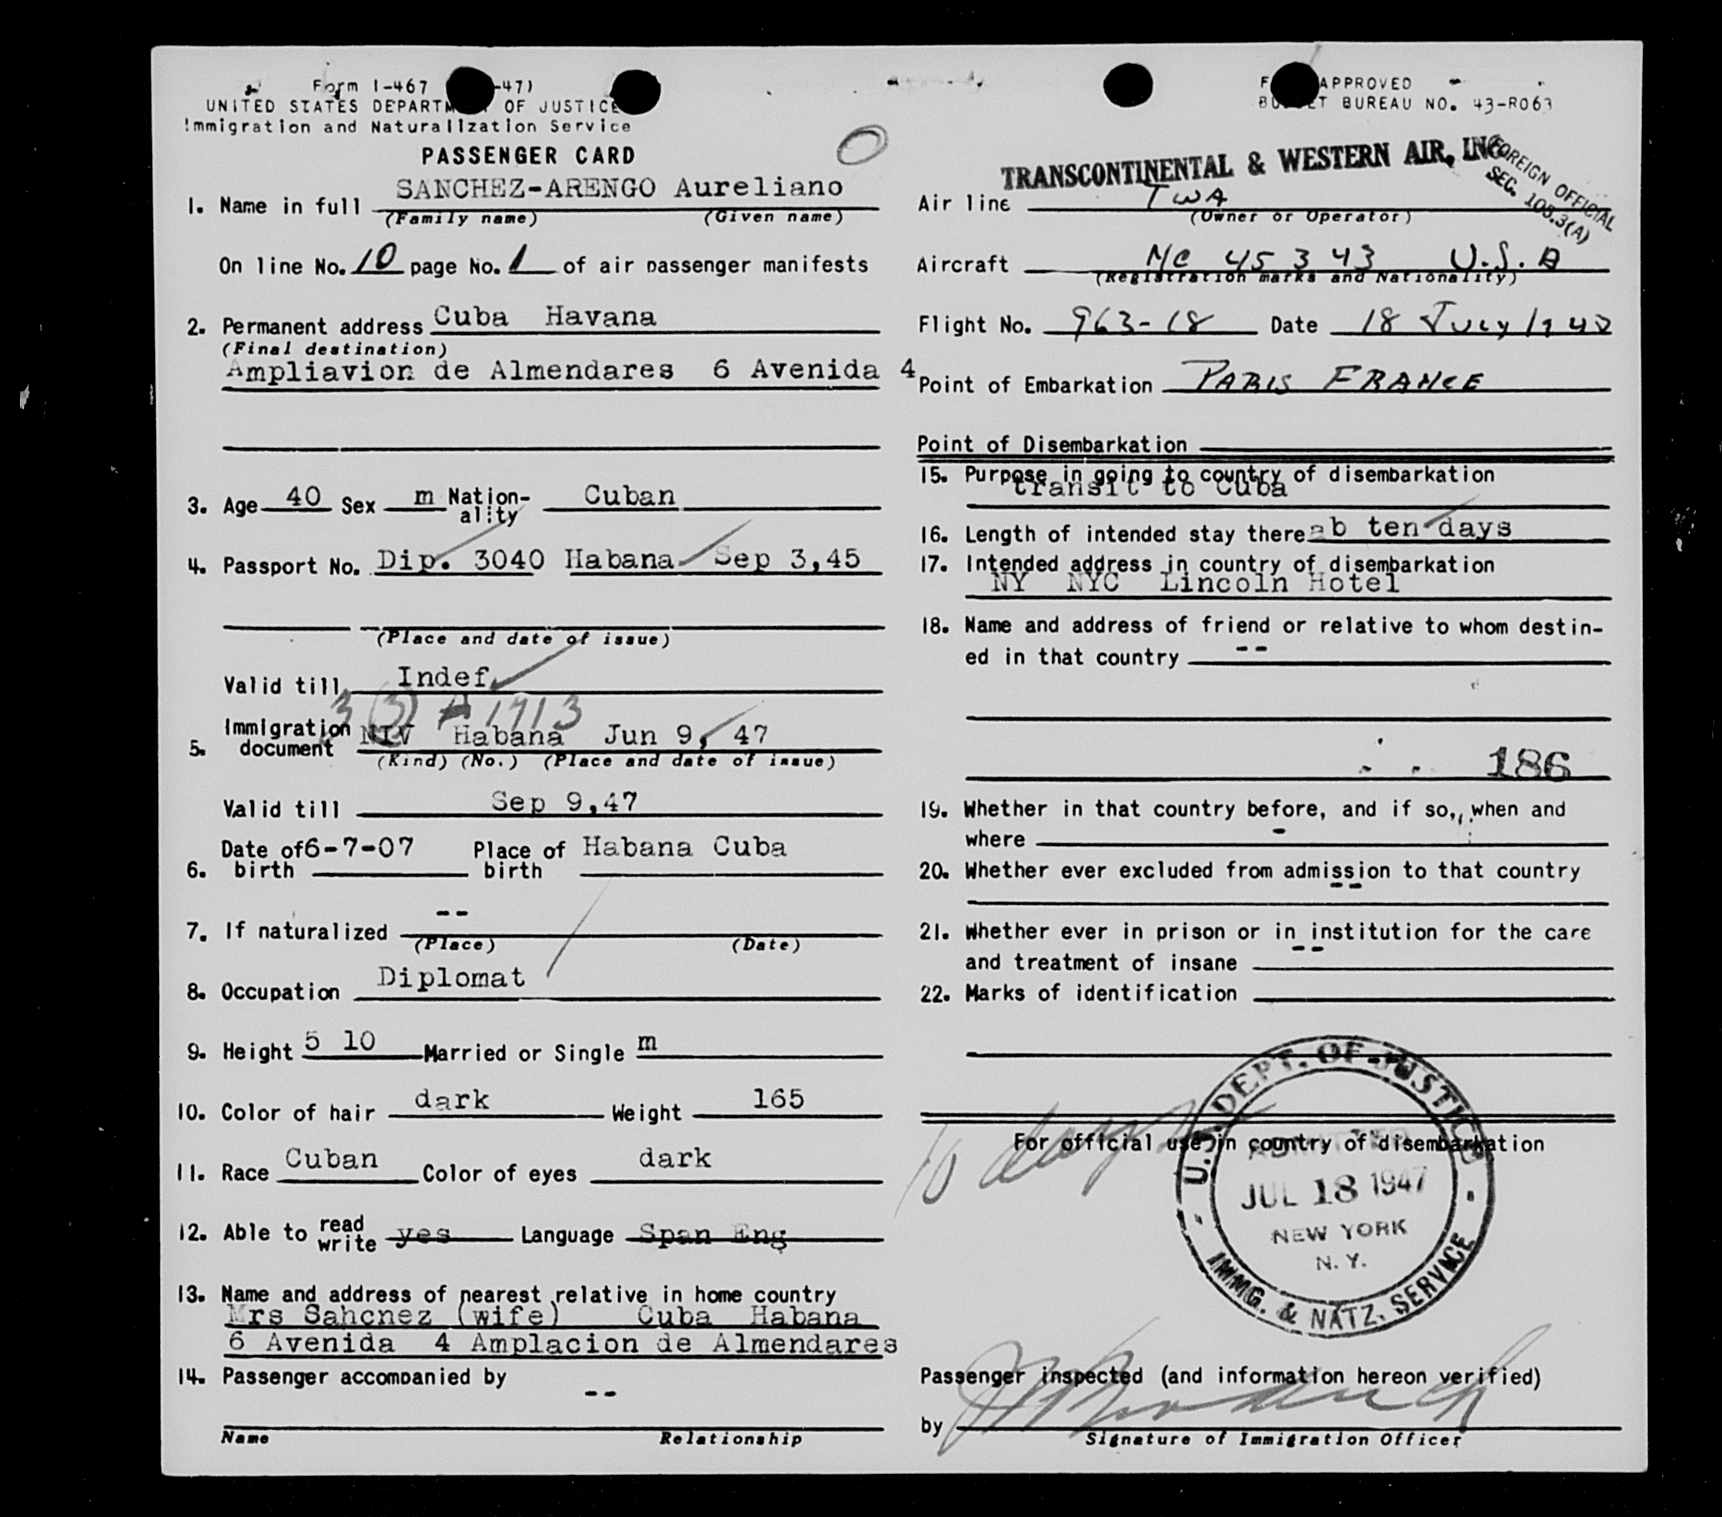 Form I-467 -47)
UNITED STATES DEPARTM OF JUSTICE
Immigration and Naturalization Service
PASSENGER CARD
1. Name in full SANCHEZ-ARENGO Aureliano
(Family name) (Given name)
On line No. 10 page No. 1 of air passenger manifests
2. Permanent address Cuba Havana
(Final destination)
Ampliavion de Almendares 6 Avenida 4
3. Age 40 Sex m Nation-
ality Cuban
4. Passport No. Dip. 3040 Habana Sep 3,45
(Place and date of issue)
Valid till Indef
3 (3) A 1713
5. Immigration
document NIV Habana Jun 9, 47
(Kind) (No.) (Place and date of issue)
Valid till Sep 9,47
6. Date of
birth 6-7-07 Place of
birth Habana Cuba
7. If naturalized --
(Place) (Date)
8. Occupation Diplomat
9. Height 5 10 Married or Single m
10. Color of hair dark Weight 165
11. Race Cuban Color of eyes dark
12. Able to read
write yes Language Span Eng
13. Name and address of nearest relative in home country
Mrs Sahcnez (wife) Cuba Habana
6 Avenida 4 Amplacion de Almendares
14. Passenger accompanied by
--
Name Relationship
F APPROVED
BU ET BUREAU NO. 43-R063
TRANSCONTINENTAL & WESTERN AIR, INC.
FOREIGN OFFICIAL
SEC. 105.3(A)
Air line TWA
(Owner or Operator)
Aircraft NC 45343 U.S.A
(Registration marks and Nationality)
Flight No. 963-18 Date 18 July
Point of Embarkation PARIS FRANCE
Point of Disembarkation
15. Purpose in going to country of disembarkation
transit to Cuba
16. Length of intended stay there ab ten days
17. Intended address in country of disembarkation
NY NYC Lincoln Hotel
18. Name and address of friend or relative to whom destin-
ed in that country --
186
19. Whether in that country before, and if so, when and
where -
20. Whether ever excluded from admission to that country
--
21. Whether ever in prison or in institution for the care
and treatment of insane --
22. Marks of identification
For official use in country of disembarkation
10 days
U.S. DEPT. OF JUSTICE
ADMITTED
JUL 18 1947
NEW YORK
N.Y.
IMMG. & NATZ. SERVICE
Passenger inspected (and information hereon verified)
by
Signature of Immigration Officer